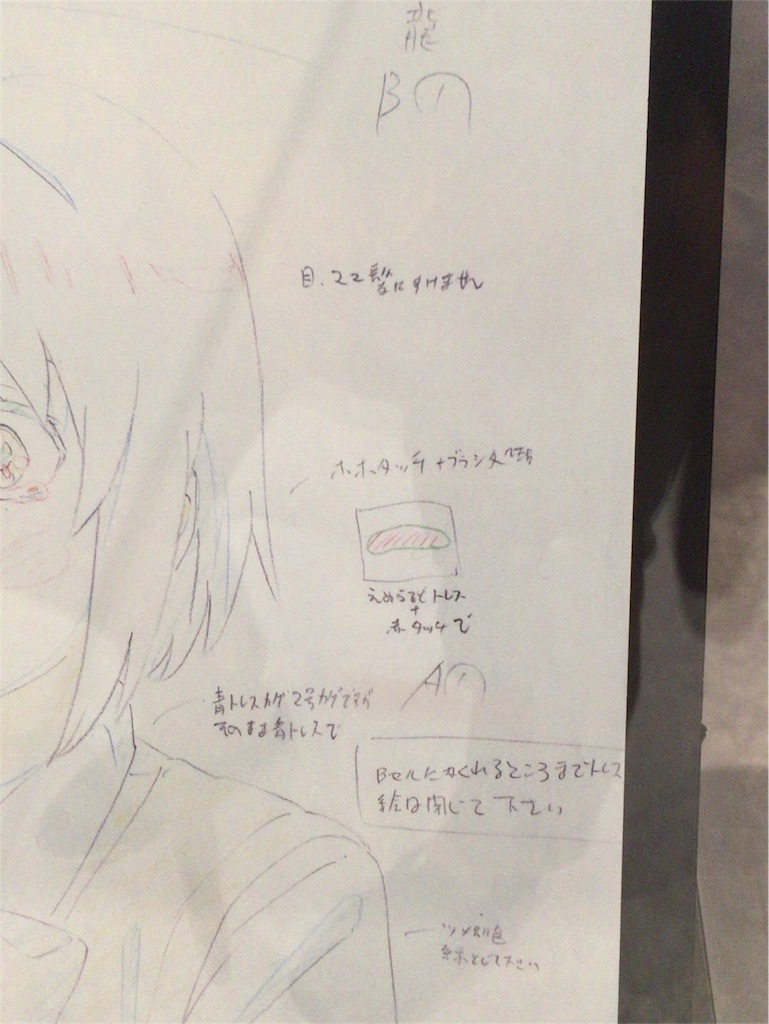 龍
B①
目、ママ髪にすけません
ホホタッチ+ブラシ処理
えめらるどトレス
+
赤タッチで
A①
青トレスカゲ2号カゲですが
そのまま青トレスで
Bセルにかくれるところまでトレス
絵は閉じて下さい
ツメ
として下さい